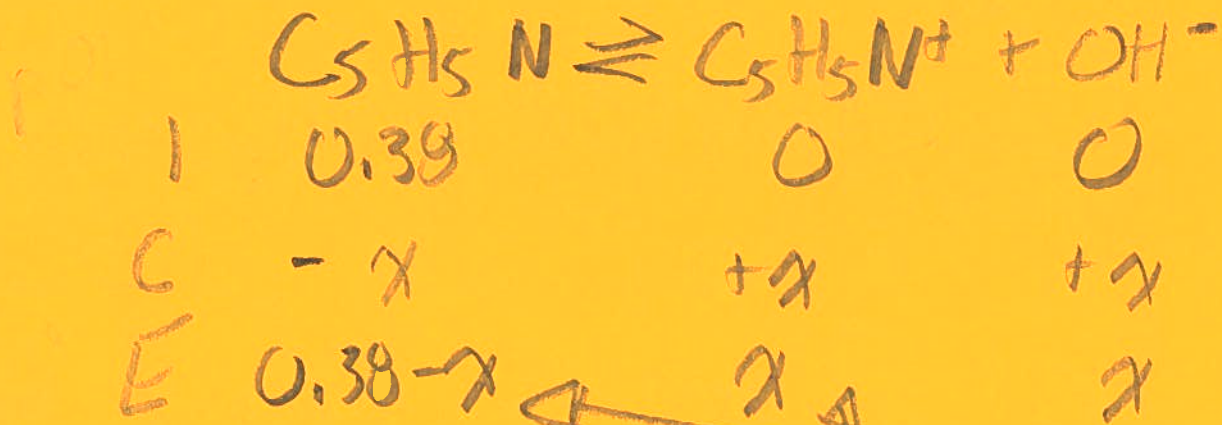 C₅H₅N ⇌ C₅H₅N⁺ + OH⁻
I 0.38 0 0
C -x +x +x
E 0.38-x x x